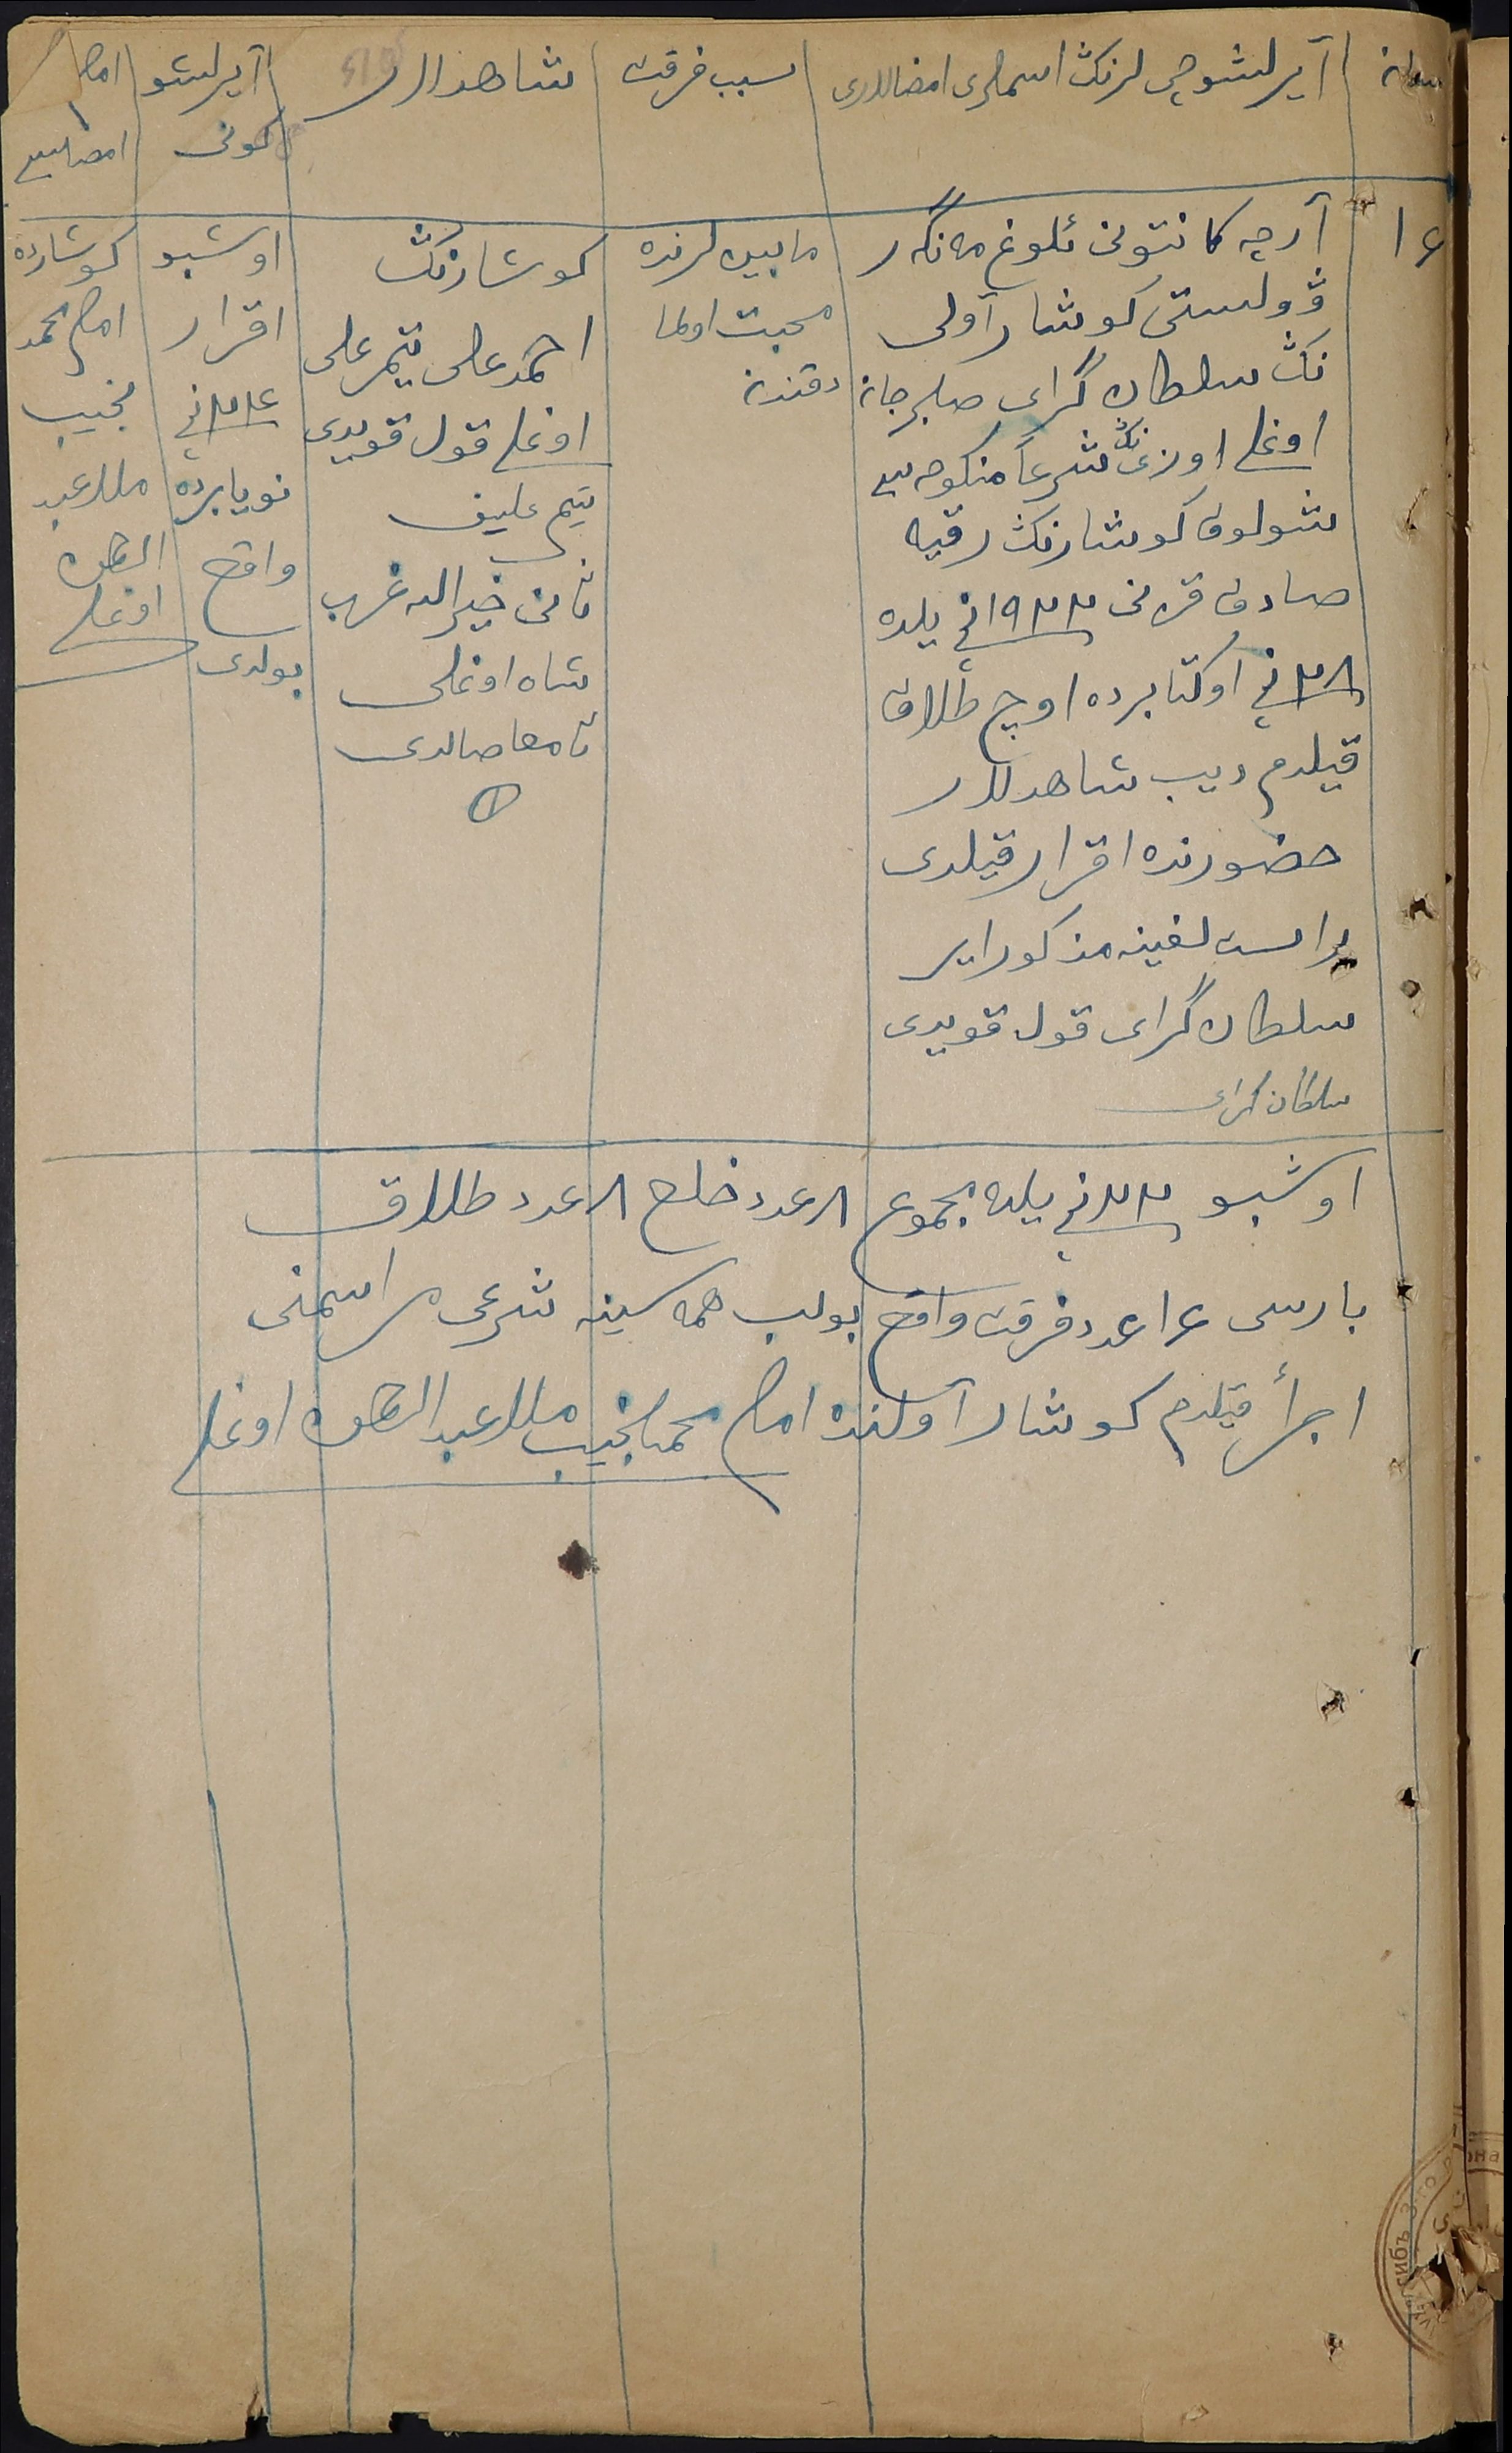 آیرلشوچی لرنکڭ اسملری امضالاری
سبب فرقت
شاهدلار
آیرلشو كونی
امام امضاسی
۱۶
آرچه كانتونی ئلوغ مه نگه ر
ۋولستی كوشار آولی
نڭ سلطان گرای صابرجان
اوغلی اوزی نڭ شرعاً منكوحه سی
شولوق كوشارنڭ رقیه
صادق قزنی ۱۹۲۲ نچی یلده
۲۸ نچی اوكتابرده اوچ طلاق
قیلدم دیب شاهدلار
حضورنده اقرار قیلدی
راست لغینه مذكور ایر
سلطان گرای قول قویدی
سلطان گرای
مابین لرنده
محبت اولما
دقندن
كوشارنڭ
احمدعلی تیمرعلی
اوغلی قول قویدی
تیمرعلیف
ثانی خیرالله غریب
شاه اوغلی
تامغا صالدی
اوشبو
اقرار
نویابرده
واقع
بولدی
كوشارده
امام محمد
نجیب
ملا عبد
الرحمن
اوغلی
اوشبو ۲۲ نچی یلده مجموع ۸ عدد خلع ۸ عدد طلاق
بارسی ۱۶ عدد فرقت واقع بولب همه سینه شرعی مراسمنی
اجرأ قیلدم كوشار آولنده امام محمدنجیب ملا عبد الرحمن اوغلی